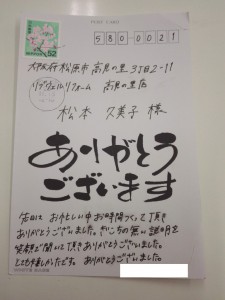 580-0021
大阪府松原市高見の里3丁目2-11
リプウェルリフォーム 高見の里店
松本 久美子 様
ありがとう
ございます
先日は、お忙しい中お時間つくって頂き
ありがとうございました。きりこちの無い説明を
笑顔で聞いて頂きありがとうございました。
とても嬉しかったです。ありがとうございました。